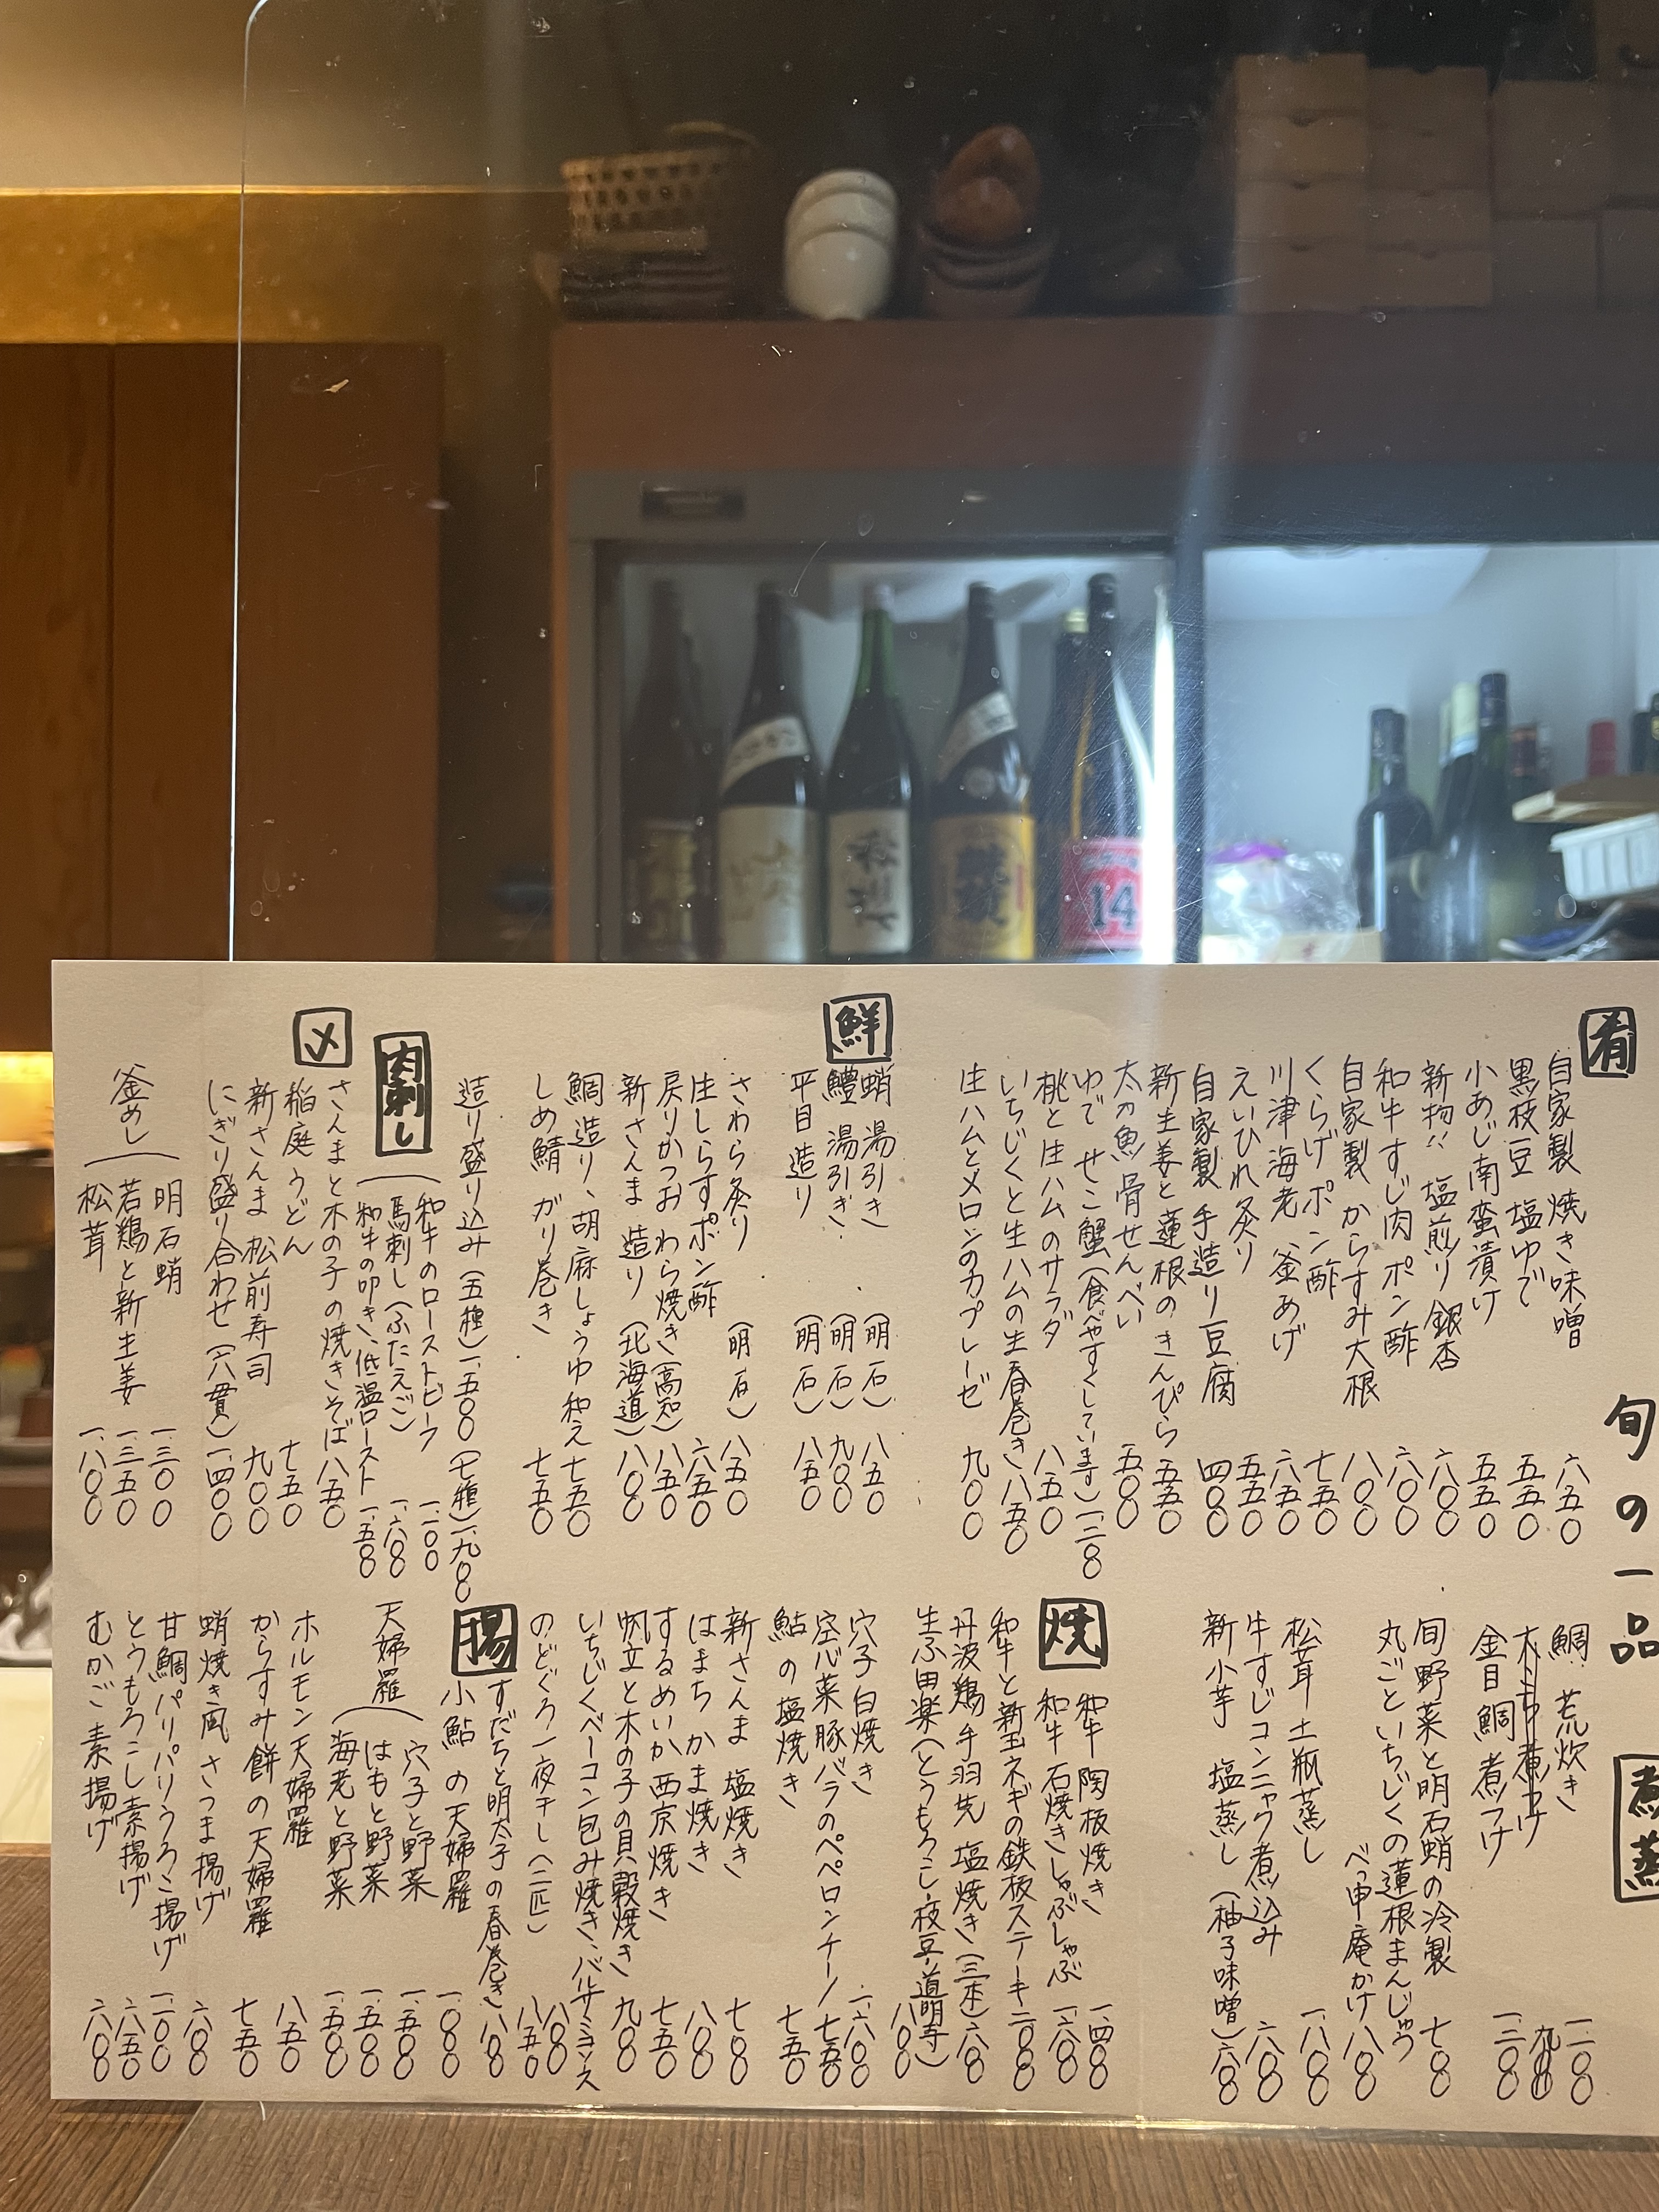 旬の一品
肴
自家製 焼き味噌 六五〇
黒枝豆 塩ゆで 五五〇
小あじ南蛮漬け 五五〇
新物!! 塩煎り銀杏 六〇〇
和牛すじ肉 ポン酢 六〇〇
自家製 からすみ大根 八〇〇
くらげポン酢 七五〇
川津海老 釜あげ 六五〇
えいひれ炙り 五五〇
自家製 手造り豆腐 四〇〇
新生姜と蓮根のきんぴら 五五〇
太刀魚 骨せんべい 五〇〇
ゆで せこ蟹(食べやすくしています) 一、二〇〇
桃と生ハムのサラダ 八五〇
いちじくと生ハムの生春巻き 八五〇
生ハムとメロンのカプレーゼ 九〇〇
鮮
蛸 湯引き (明石) 八五〇
鱧 湯引き (明石) 九〇〇
平目 造り (明石) 八五〇
さわら炙り (明石) 八五〇
生しらすポン酢 六五〇
戻りかつお わら焼き(高知) 八五〇
新さんま 造り (北海道) 八〇〇
鯛 造り、胡麻しょうゆ和え 七五〇
しめ鯖 ガリ巻き 七五〇
造り盛り込み(五種)一、五〇〇 (七種)一、九〇〇
肉刺し
和牛のローストビーフ 一、二〇〇
馬刺し(ふたえご) 一、六〇〇
和牛の叩き、低温ロースト 一、五〇〇
〆
さんまと木の子の焼きそば 八五〇
稲庭うどん 七五〇
新さんま 松前寿司 九〇〇
にぎり盛り合わせ(六貫) 一、四〇〇
釜めし
明石蛸 一、三〇〇
若鶏と新生姜 一、三五〇
松茸 一、八〇〇
煮 蒸
鯛 荒炊き 一、二〇〇
煮つけ 九〇〇
金目鯛 煮つけ 一、二〇〇
旬野菜と明石蛸の冷製 七〇〇
丸ごといちじくの蓮根まんじゅう
べっ甲庵かけ 八〇〇
松茸 土瓶蒸し 一、八〇〇
牛すじコンニャク煮込み 六〇〇
新小芋 塩蒸し(柚子味噌) 六〇〇
焼
和牛 陶板焼き 一、四〇〇
和牛 石焼きしゃぶしゃぶ 一、六〇〇
和牛と新玉ネギの鉄板ステーキ 二、〇〇〇
丹波鶏 手羽先 塩焼き(三本) 六〇〇
生ふ田楽(とうもろこし・枝豆・道明寺) 八〇〇
穴子 白焼き 一、六〇〇
空心菜 豚バラのペペロンチーノ 七五〇
鮎の塩焼き 七五〇
新さんま 塩焼き 七〇〇
はまち かま焼き 八〇〇
するめいか 西京焼き 七五〇
帆立と木の子の貝殻焼き 九〇〇
いちじくベーコン包み焼き、バルサミコソース 八〇〇
のどぐろ一夜干し(二匹) 八五〇
揚
すだちと明太子の春巻き 八〇〇
小鮎 の天婦羅 一、〇〇〇
天婦羅
穴子と野菜 一、五〇〇
はもと野菜 一、五〇〇
海老と野菜 一、五〇〇
ホルモン天婦羅 八五〇
からすみ餅の天婦羅 七五〇
蛸焼き風 さつま揚げ 六〇〇
甘鯛パリパリうろこ揚げ 一、二〇〇
とうもろこし素揚げ 六五〇
むかご素揚げ 六〇〇
14